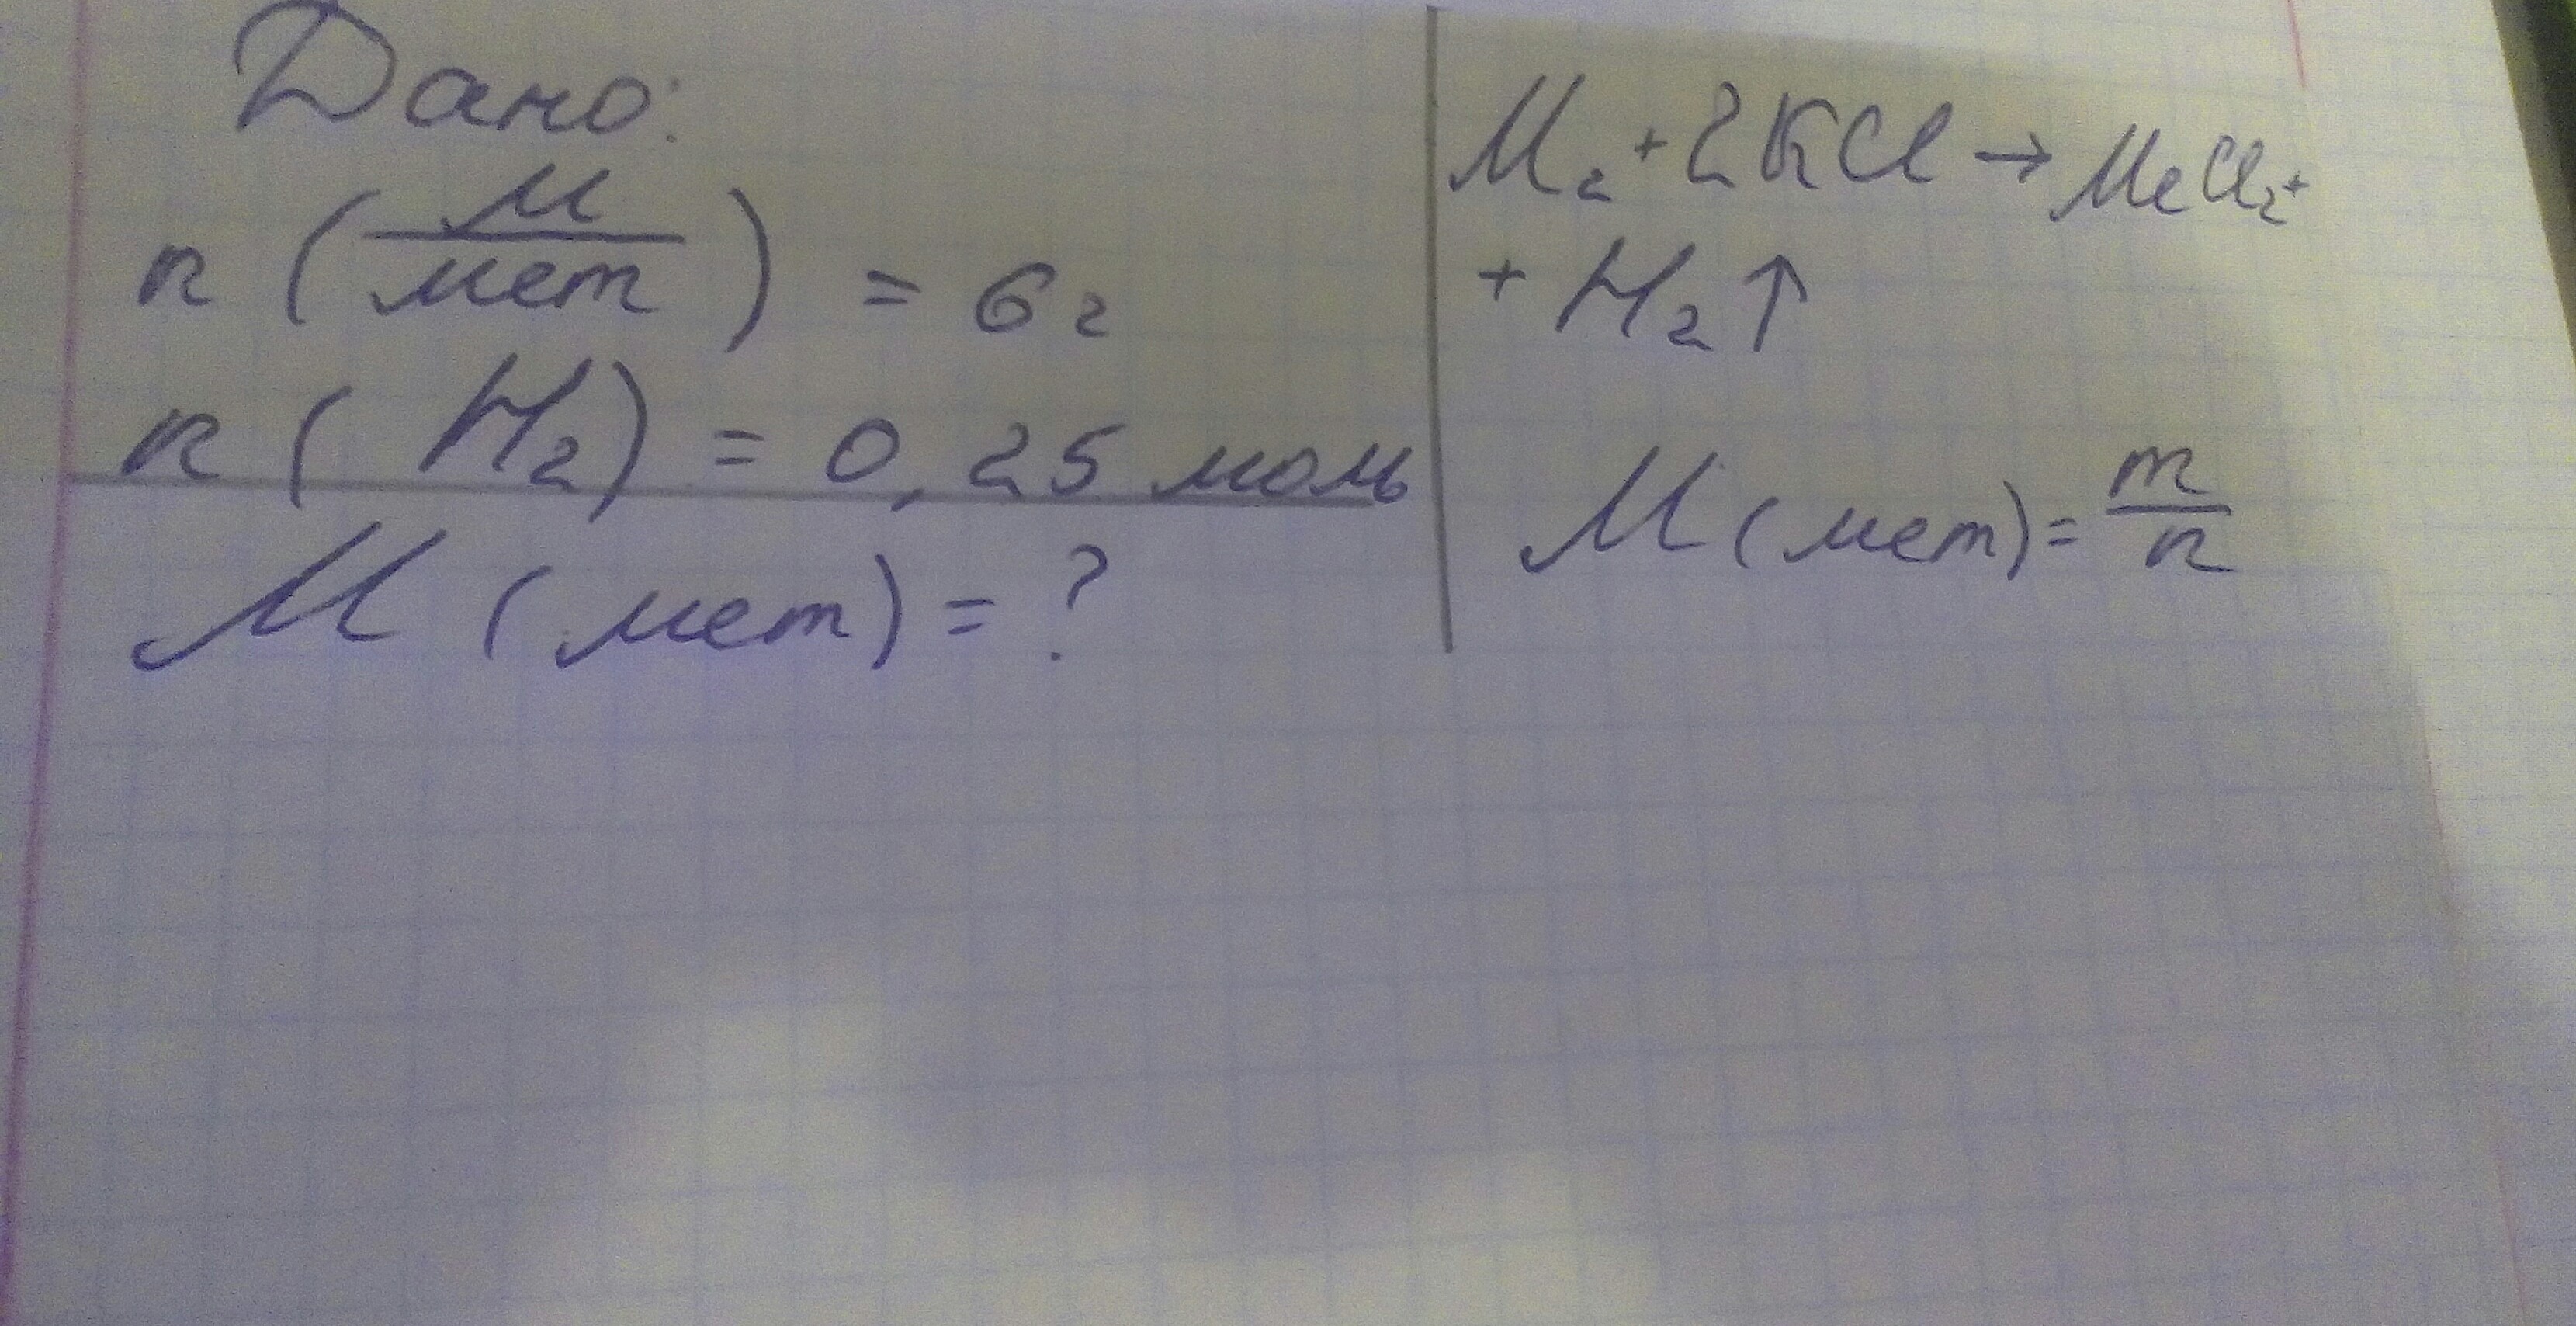 Дано:
n ( М / мет ) = 6 г
n ( H₂) = 0,25 моль
М ( мет) = ?
M₂ + 2KCl → MeCl₂ +
+ H₂↑
М (мет) = m / n